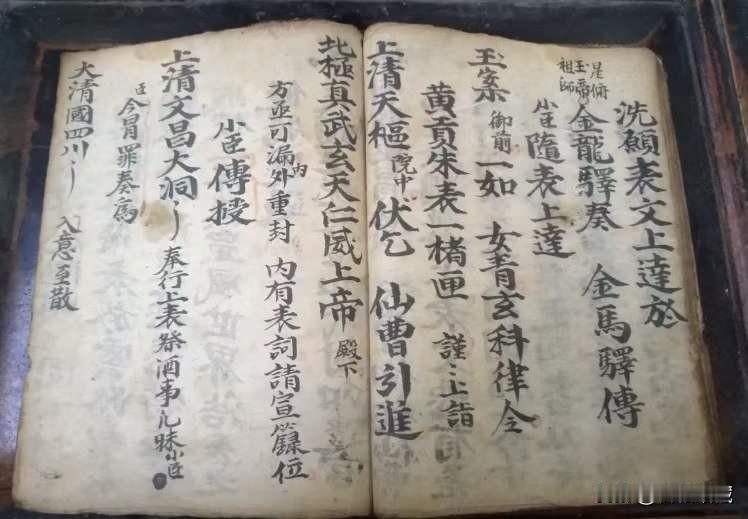 洗願表文上達於
玉帝祖師金龍驛奏 金馬驛傳
小臣隨表上達
玉案御前一如 女青玄科律令
黃貢朱表一楮匣 謹〻上詣
上清天樞院中伏乞 仙曹引進
北極真武玄天仁威上帝 殿下
方函可漏內外重封 內有表詞請宣籙位
小臣傳授
上清文昌大洞〻 奉行上表祭酒事凡昧小臣
臣今冒罪奏為
大清國四川〻 入意至散